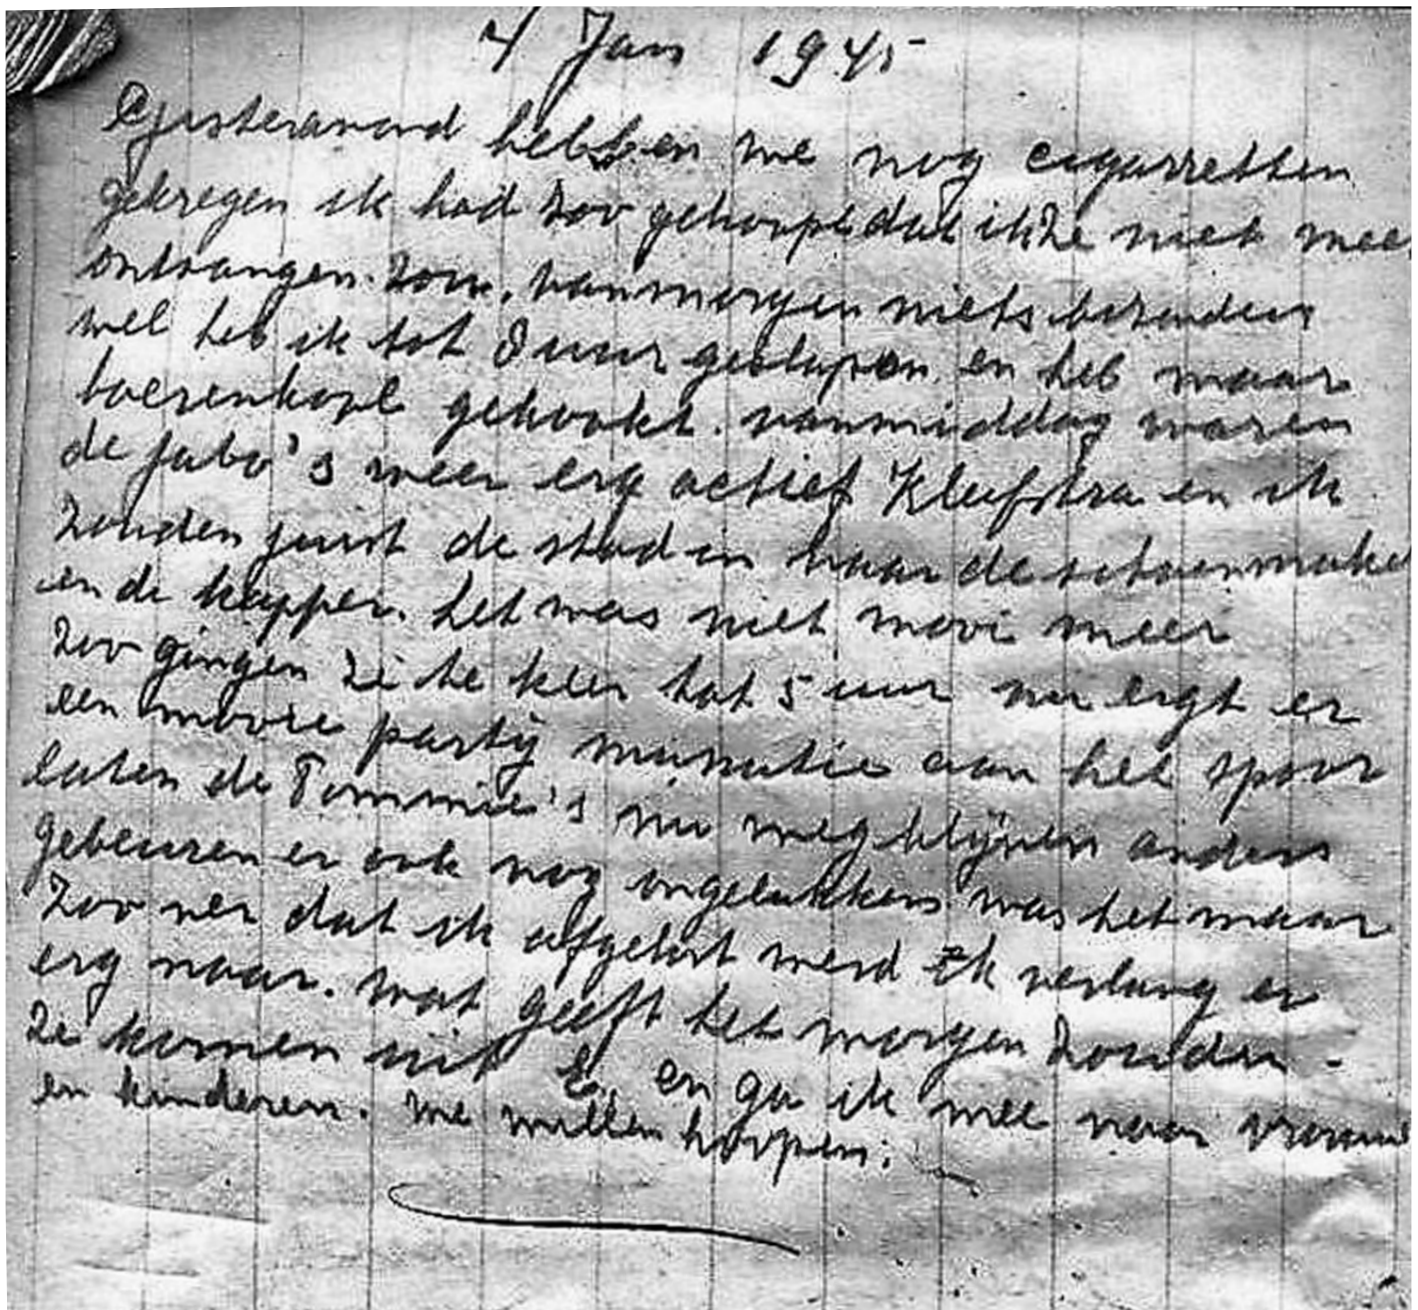 4 Jan 1945
Gisteravond hebben we nog cigarretten
gekregen ik had zoo gehoopt dat ik ze niet meer
ontvangen zou. vanmorgen niets bizonders
wel heb ik tot 8 uur geslapen en heb maar
boerenkool gekookt. vanmiddag waren
de jabo's weer erg actief Kleefstra en ik
zouden juist de stad in naar de schoenmaker
en de kapper. het was niet mooi meer
zoo gingen ze te keer tot 5 uur nu ligt er
een mooie partij munutie aan het spoor
laten de Tommie's nu wegblijven anders
gebeuren er ook nog ongelukken was het maar
zoo ver dat ik afgelost werd Ik verlang er
erg naar. wat geeft het morgen zouden
ze komen uit E. en ga ik mee naar vrouw
en kinderen. we willen hoopen.